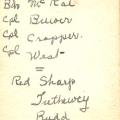 Bdr McRae
Cpl Buiser
Cpl Crapper.
Cpl West
Red Sharp
Tuthewcy
Rudd